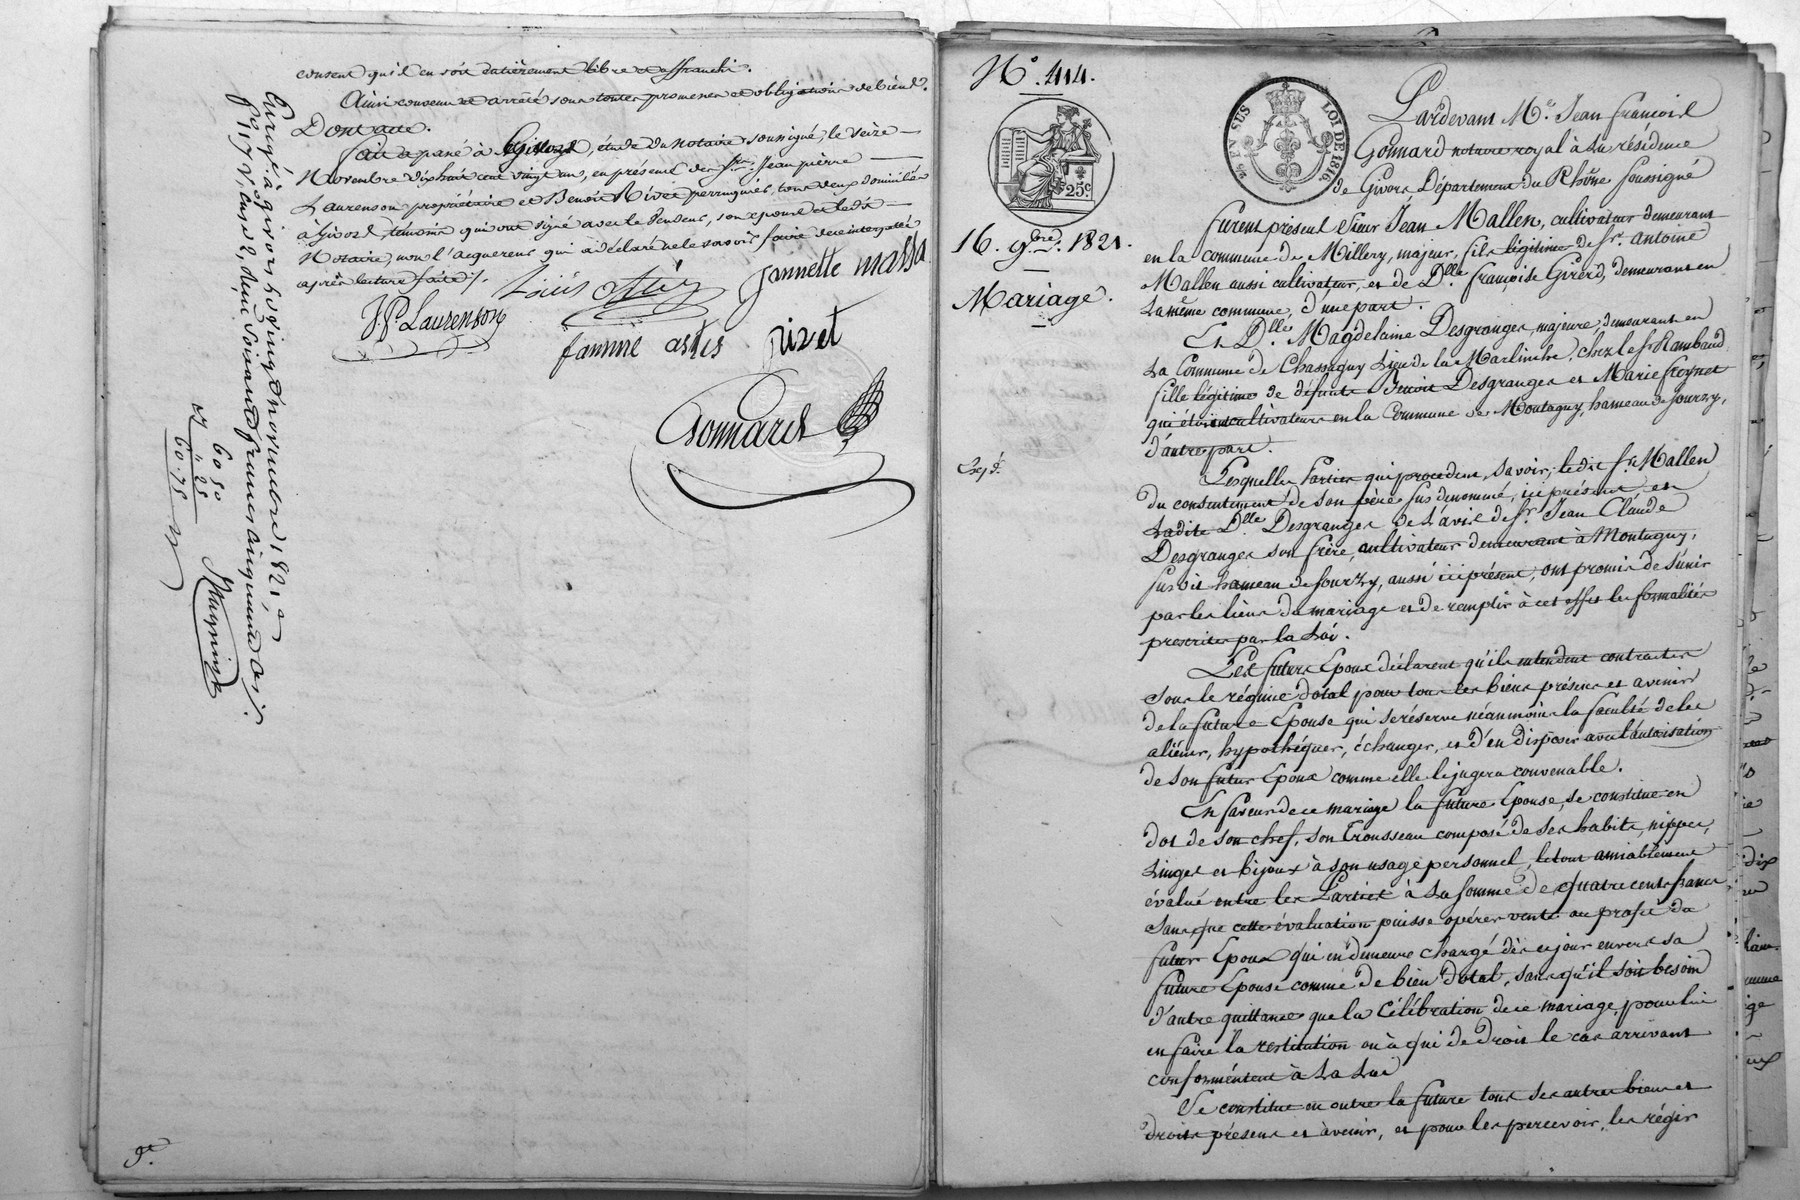 consent qu'il en soit entièrement libre et affranchi.
Ainsi convenu et arrêté sous toutes promesses et obligations de Droit.
Dont acte.
fait et passé à Givors, étude du Notaire soussigné, le seize
Novembre dix huit cent vingt un, en présence des Srs. Jean pierre
Laurenson propriétaire et Benoit Rivet perruquier, tous deux domiciliés
à Givors, témoins qui ont signé avec le vendeur, son epouse et ledit
Notaire, non l'acquereur qui a déclaré ne le savoir faire de ce interpellé
après lecture faite ./.
Louis
Jannette massa
J. P. Laurenson
fannine astis
rivet
Gonnard
Enrégé à givors, le vingt novembre 1821,
fo. 117, reçu soixante francs cinquante c. ./.
60 50
25
60.75
9e.
No. 414.
16. 9bre. 1821.
Mariage.
Exp. d.
EN SUS
LOI DE 1816
25c
Pardevant Me. Jean françois
Gonnard notaire royal à la résidence
de Givors, Département du Rhône soussigné
furent présens Sieur Jean Mallen, cultivateur demeurant
en la commune de Millery, majeur, fils légitime de Sr. Antoine
Mallen aussi cultivateur, et de Dlle. françoise Girerd, demeurans en
la même commune, d'une part.
Et Dlle. Magdelaine Desgranges, majeure, demeurant en
la Commune de Chassagny lieu de la Marlinche, chez le Sr Rambaud
fille légitime de défunts Benoit Desgranges et Marie freynet
qui étoient cultivateurs en la Commune de Montagny, hameau de sourzy,
d'autre part.
Lesquelles Parties qui procèdent, savoir, ledit Sr. Mallen
du consentement de son père sus dénommé, ici présent, et
ladite Dlle Desgranges de l'avis de Sr. Jean Claude
Desgranges son frère, cultivateur demeurant à Montagny,
susdit hameau de sourzy, aussi ici présent, ont promis de s'unir
par les liens du mariage et de remplir à cet effet les formalités
prescrites par la Loi.
Les futurs Epoux déclarent qu'ils entendent contracter
sous le régime dotal pour tous les biens présens et avenir
de la future Epouse qui se réserve néanmoins la faculté de les
aliéner, hypothéquer, échanger, et d'en disposer avec l'autorisation
de son futur Epoux comme elle le jugera convenable.
En faveur de ce mariage la future Epouse, se constitue en
dot de son chef, son Trousseau composé de ses habits, nippes,
Linges et bijoux à son usage personnel, le tout amiablement
évalué entre les Parties à la somme de quatre cents francs
sans que cette évaluation puisse opérer vente au profit du
futur Epoux qui en demeure chargé dès ce jour envers sa
future Epouse comme de bien dotal, sans qu'il soit besoin
d'autre quittance que la Célébration de ce mariage, pour lui
en faire la restitution ou à qui de droit le cas arrivant
conformément à la Loi
Se constitue en outre la future tous ses autres biens et
droits présens et àvenir, et pour les percevoir, les régir